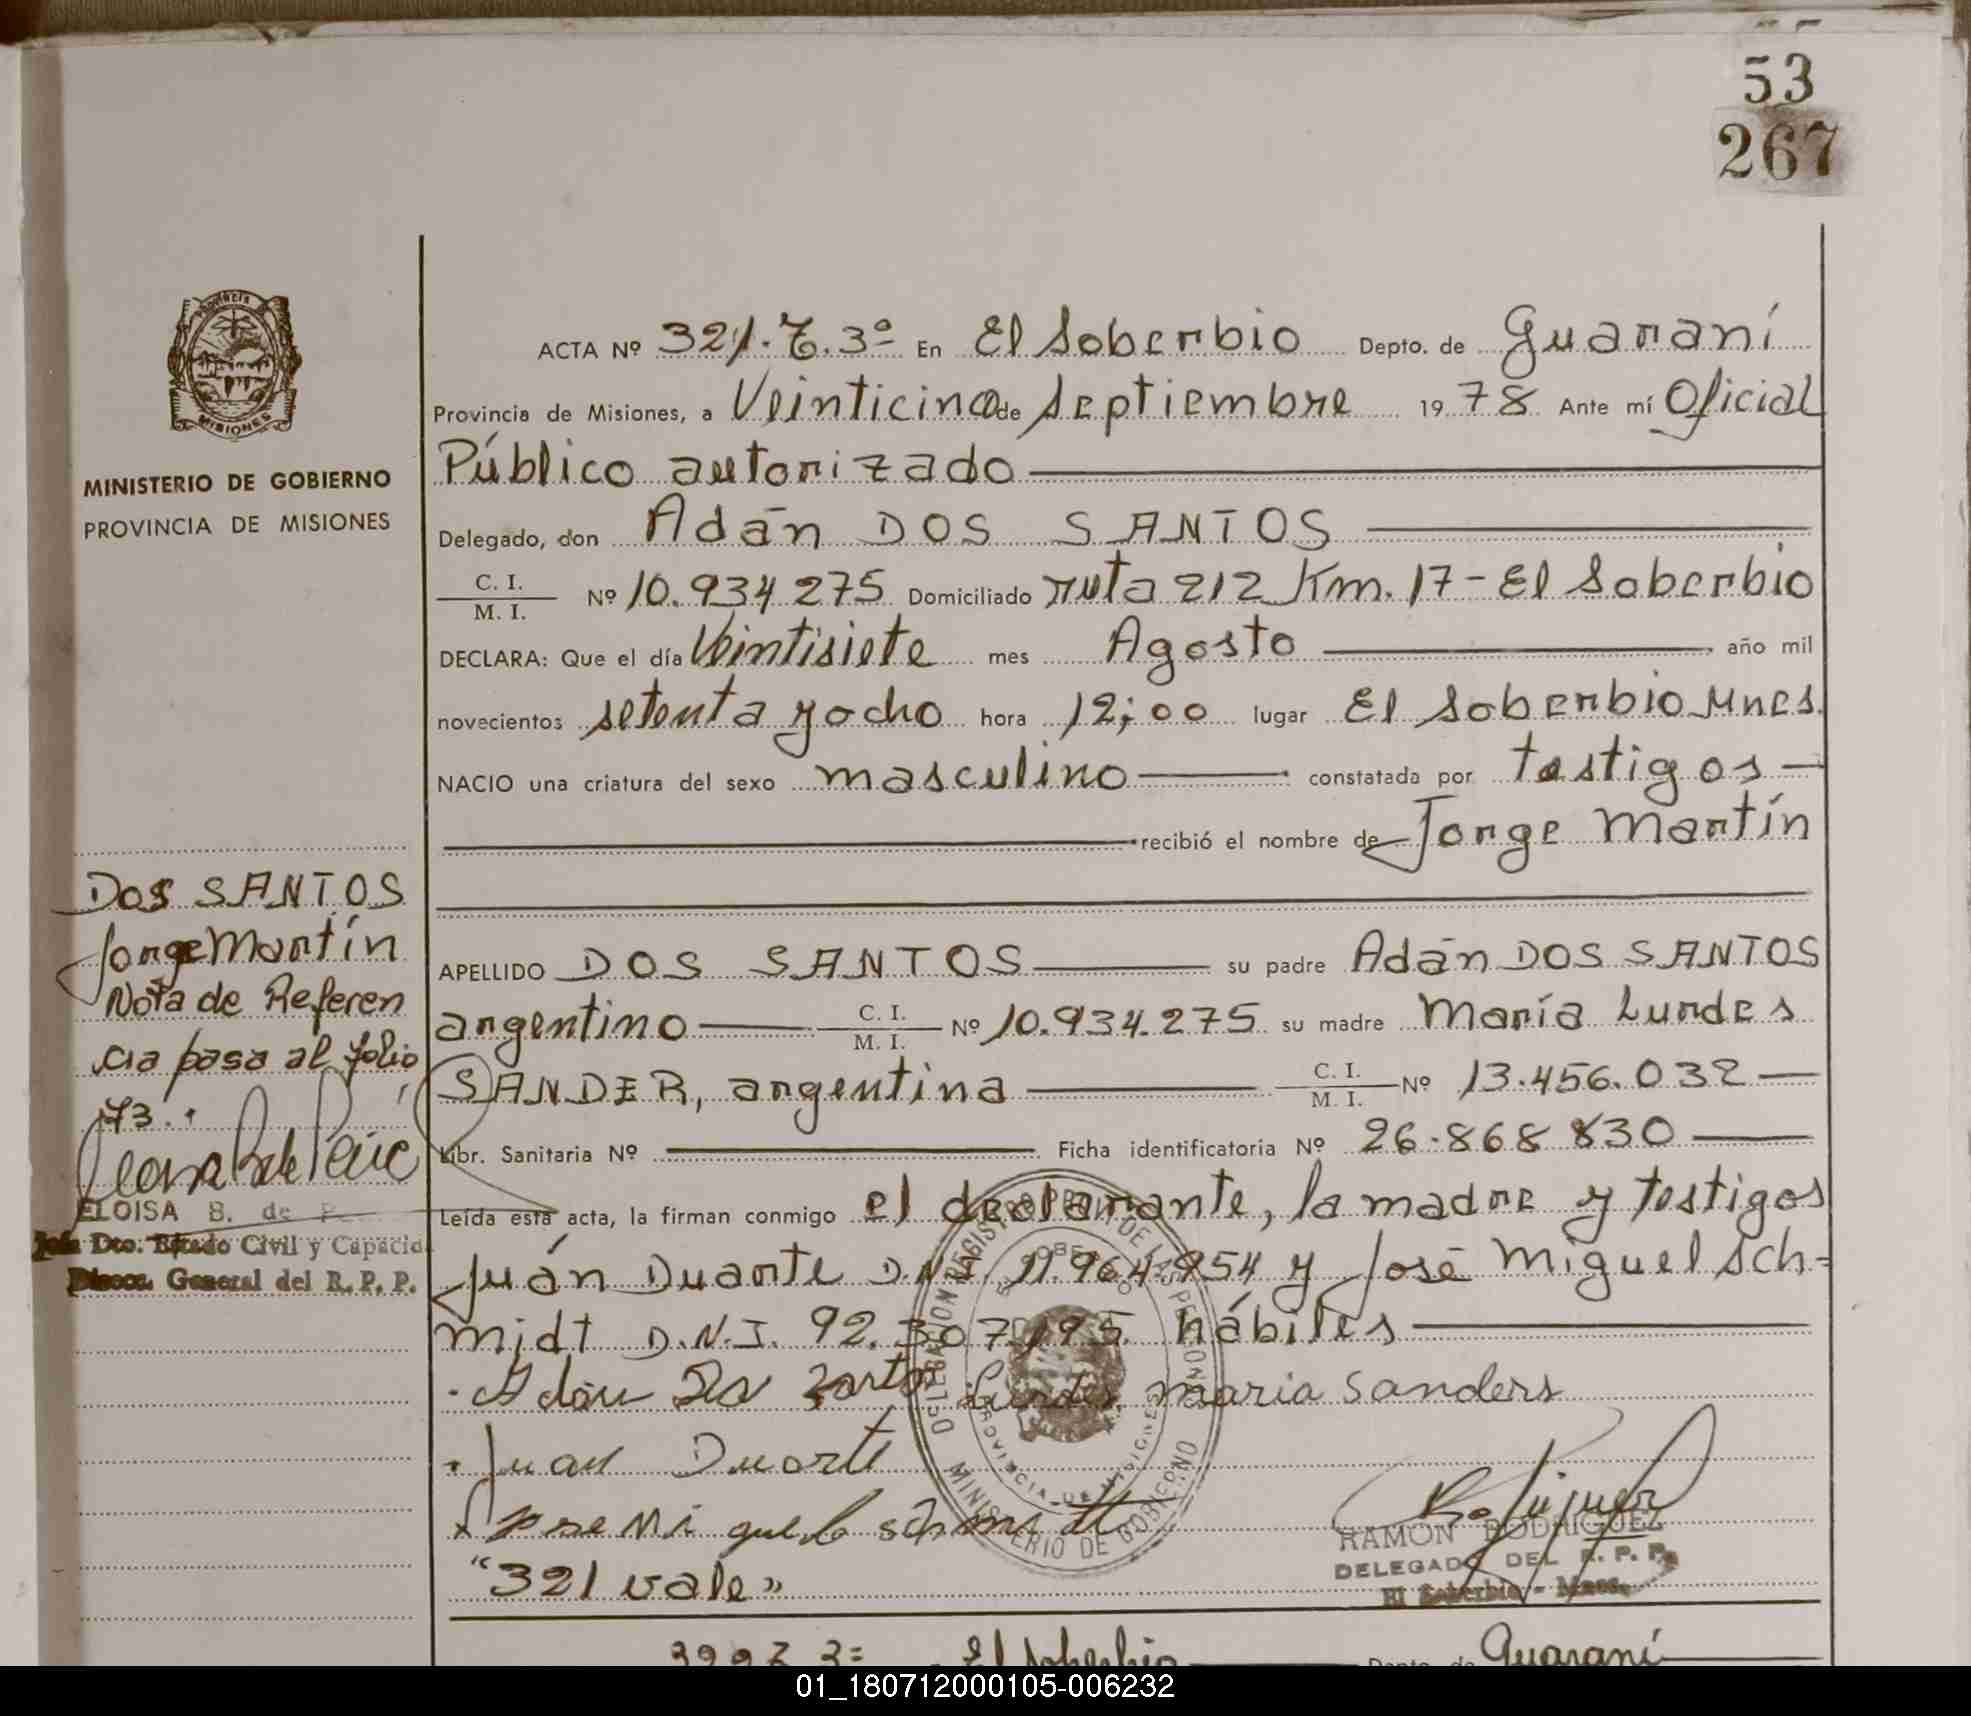 53
267
ACTA Nº 321. T. 3º En El Soberbio Depto. de Guaraní
Provincia de Misiones, a Veinticinco de Septiembre 19 78 Ante mí Oficial
Público autorizado
Delegado, don Adán DOS SANTOS
C. I.
M. I. Nº 10.934.275 Domiciliado ruta 212 Km. 17 - El Soberbio
DECLARA: Que el día Veintisiete mes Agosto año mil
novecientos setenta y ocho hora 12;00 lugar El Soberbio Mnes.
NACIO una criatura del sexo masculino constatada por testigos
recibió el nombre de Jorge Martín
APELLIDO DOS SANTOS su padre Adán DOS SANTOS
argentino C. I.
M. I. Nº 10.934.275 su madre María Lurdes
SANDER, argentina C. I.
M. I. Nº 13.456.032
Libr. Sanitaria Nº Ficha identificatoria Nº 26.868 830
Leída esta acta, la firman conmigo el declarante, la madre y testigos
Juán Duarte D.N.I. 11.964.954 y José Miguel Sch=
midt D.N.I. 92.307.195. hábiles
Adán Dos Santos Lurdes maria Sanders
Juan Duarte
Jose Mi guel schmidt
"321 vale"
MINISTERIO DE GOBIERNO
PROVINCIA DE MISIONES
DOS SANTOS
Jorge Martín
Nota de Referen
cia pasa al folio
73.
ELOISA B. de
Jefa Dto. Estado Civil y Capacid
Direcc. General del R. P. P.
DELEGACION REGISTRO PROV. DE LAS PERSONAS
MINISTERIO DE GOBIERNO
PROVINCIA DE MISIONES
RAMON RODRIGUEZ
DELEGADO DEL R. P. P.
El Soberbio - Mnes.
El Soberbio Depto. de Guaraní
01_180712000105-006232